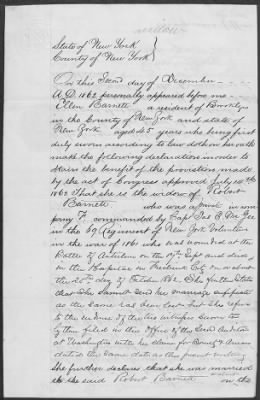 State of New York
County of New York
On this second day of December
A.D. 1862 personally appeared before me
Ellen Barnett a resident of Brooklyn
in the County of New York and state of
New York aged 65 years who being first
duly sworn according to law doth on her oath
make the following declaration in order to
obtain the benefit of the provision made
by the act of Congress approved July 14th
1862 That she is the widow of Robert
Barnett who was a private in com
pany F commanded by Cap Jas
in the 69 Regiment of New York Volunteers
in the war of 1861 who was wounded at the
Battle of Antietam on the 17th Sept and died
in the Hospital in Frederick City on or about
the 20th day of 1862. She further states
that she
as the same has been lost but she refers
to the evidence of the two witnesses sworn to
by them filed in the office of the Second Auditor
at Washington with her claim for Bounty &
dated the same date as this present writing
She further declares that she was married
to the said Robert Barnett on the